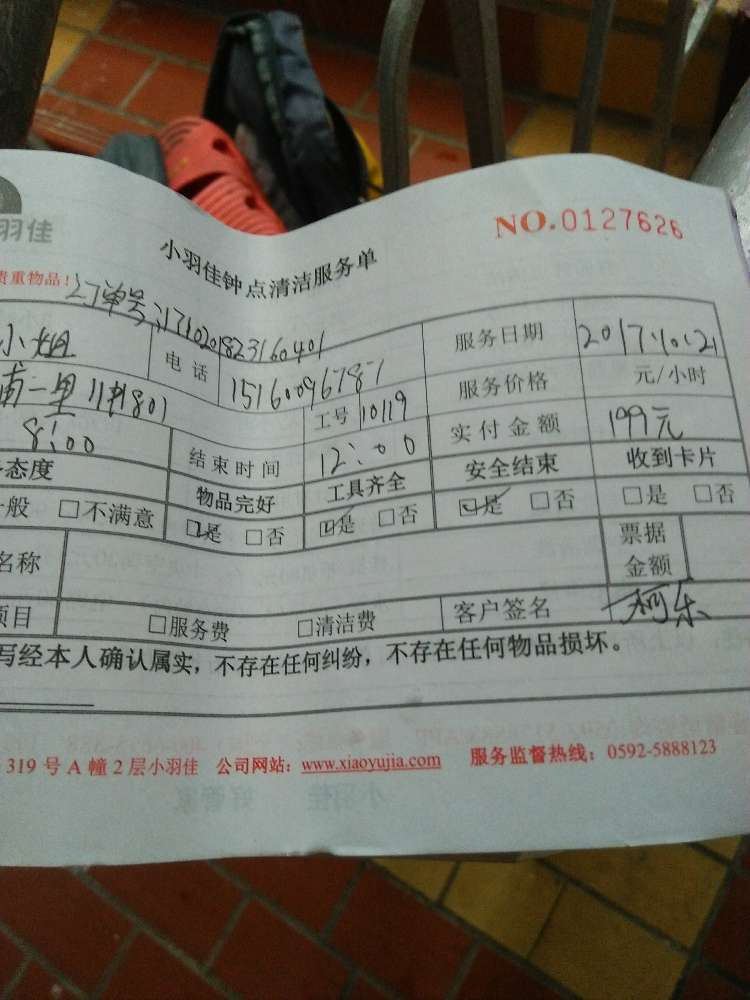 NO.0127626
羽佳
小羽佳钟点清洁服务单
贵重物品！
订单号:1710201823160401
小姐 电话 15160096787 服务日期 2017.10.21
南一里 工号 10119 服务价格 元/小时
8:00 结束时间 12:00 实付金额 199元
态度 物品完好 工具齐全 安全结束 收到卡片
一般 □不满意 ☑是 □否 ☑是 □否 ☑是 □否 □是 □否
名称 票据金额
项目 □服务费 □清洁费 客户签名
写经本人确认属实，不存在任何纠纷，不存在任何物品损坏。
319 号 A 幢 2 层小羽佳 公司网站：www.xiaoyujia.com 服务监督热线：0592-5888123